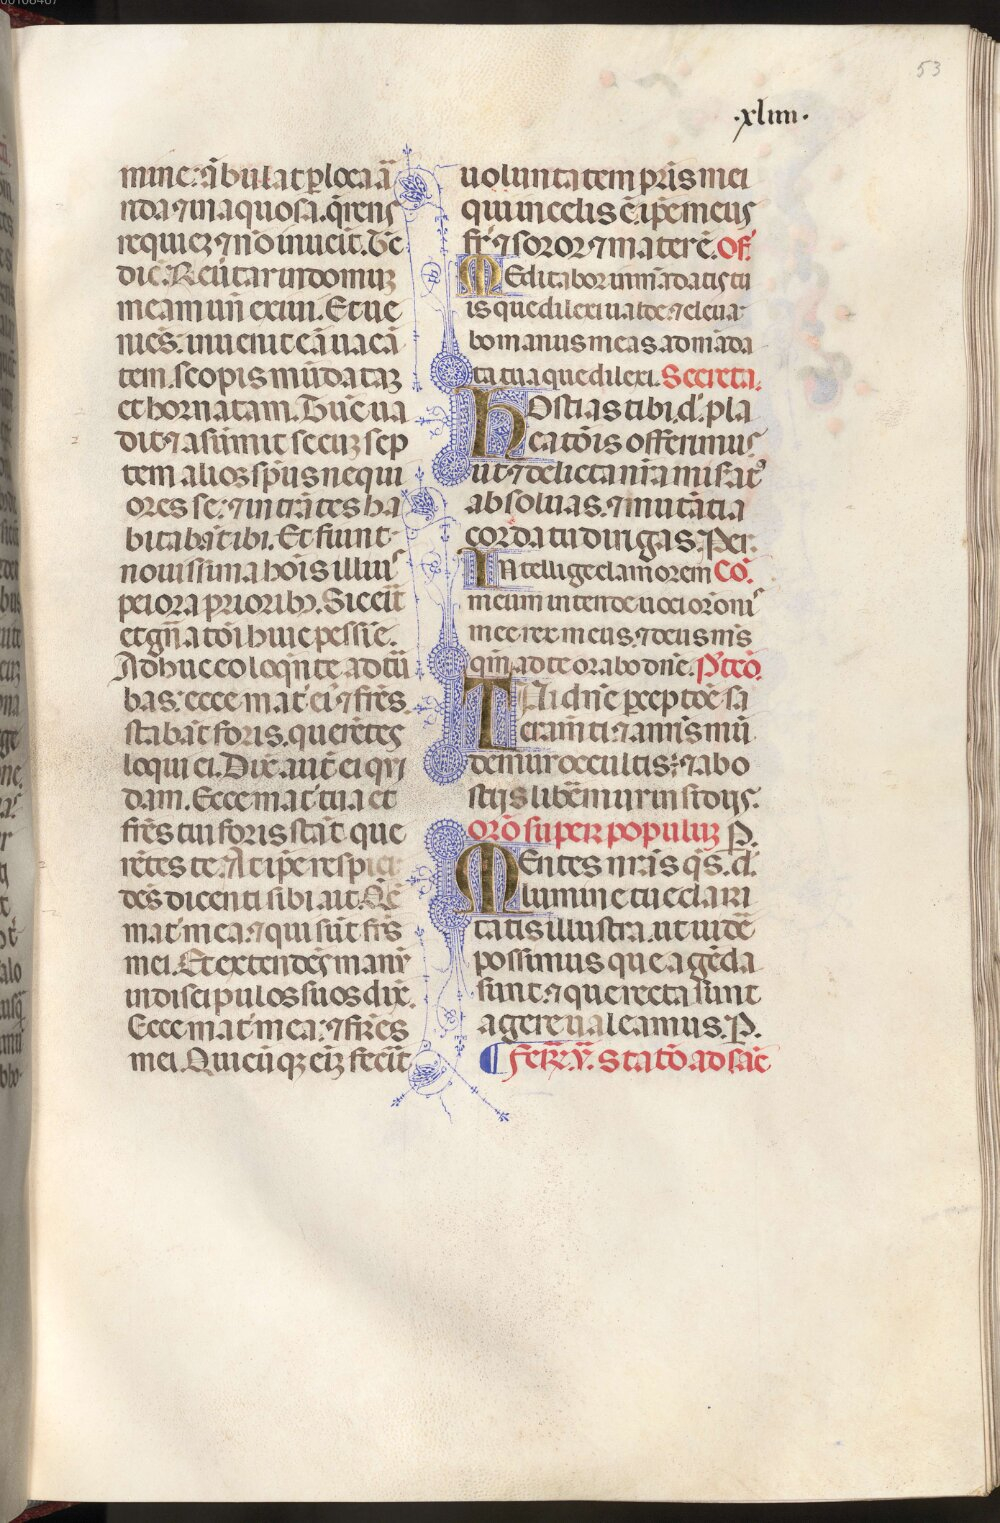 53
·xliiii·
mine: ābulat p loca a
rida ⁊ inaquosa. q̄rens
requiez ⁊ nō inueit. Tc̄
dic̄. Reūtar in domuz
meam un̄ exiui. Et ue
niēs. inuenit eā uacā
tem. scopis mūdataz
et hornatam. Tūc ua
dit ⁊ asūmit secuz sep
tem alios sp̄us nequi
ores se: ⁊ intrātes ha
bitāt ibi. Et fiunt
nouissima hoīs illius
peiora priorib;. Sic eīt
et gn̄atōi huic pessīe.
Adhuc eo loqn̄te ad tū
bas: ecce mat̄ ei ⁊ frēs
stabāt foris. querētes
loqui ei. Dix̄ aūt ei qui
dam. Ecce mat̄ tua et
frēs tui foris stāt que
rētes te. At ip̄e respō
dēs dicenti sibi ait. Q̄ ē
mat̄ mea. ⁊ qui sūt frs̄
mei. Et extendēs manū
in discipulos suos dix̄.
Ecce mat̄ mea: ⁊ frēs
mei. Quicūq; eīz fecīt
uoluntatem pr̄is mei
qui in celis ē. ip̄e meus
fr̄ ⁊ soror ⁊ mater ē. Of.
Meditabor in mādatis tu
is que dilexi ualde: ⁊ eleua
bo manus meas ad māda
ta tua que dilexi. Secreta.
Hostias tibi. d̄. pla
catōis offerimus
ut ⁊ delicta nr̄a misat̄
absoluas. ⁊ nutātia
corda tu dirigas. Per.
Intellige clamorem Cō.
meum intende uoci orōnis
mee rex meus. ⁊ deus m̄s
qm̄ ad te orabo dn̄e. P̄tcō.
Tui dn̄e p̄ceptōe sa
cram̄ti ⁊ a nr̄is mū
demur occultis: ⁊ ab o
stijs libēmur insidijs.
orō super populuz P.
Mentes nr̄as q̄s. d̄.
lumine tue clari
tatis illustra. ut uidē
possimus que agēda
sunt: ⁊ que recta sunt
agere ualeamus. P.
Feīr. v. statō ad sāc